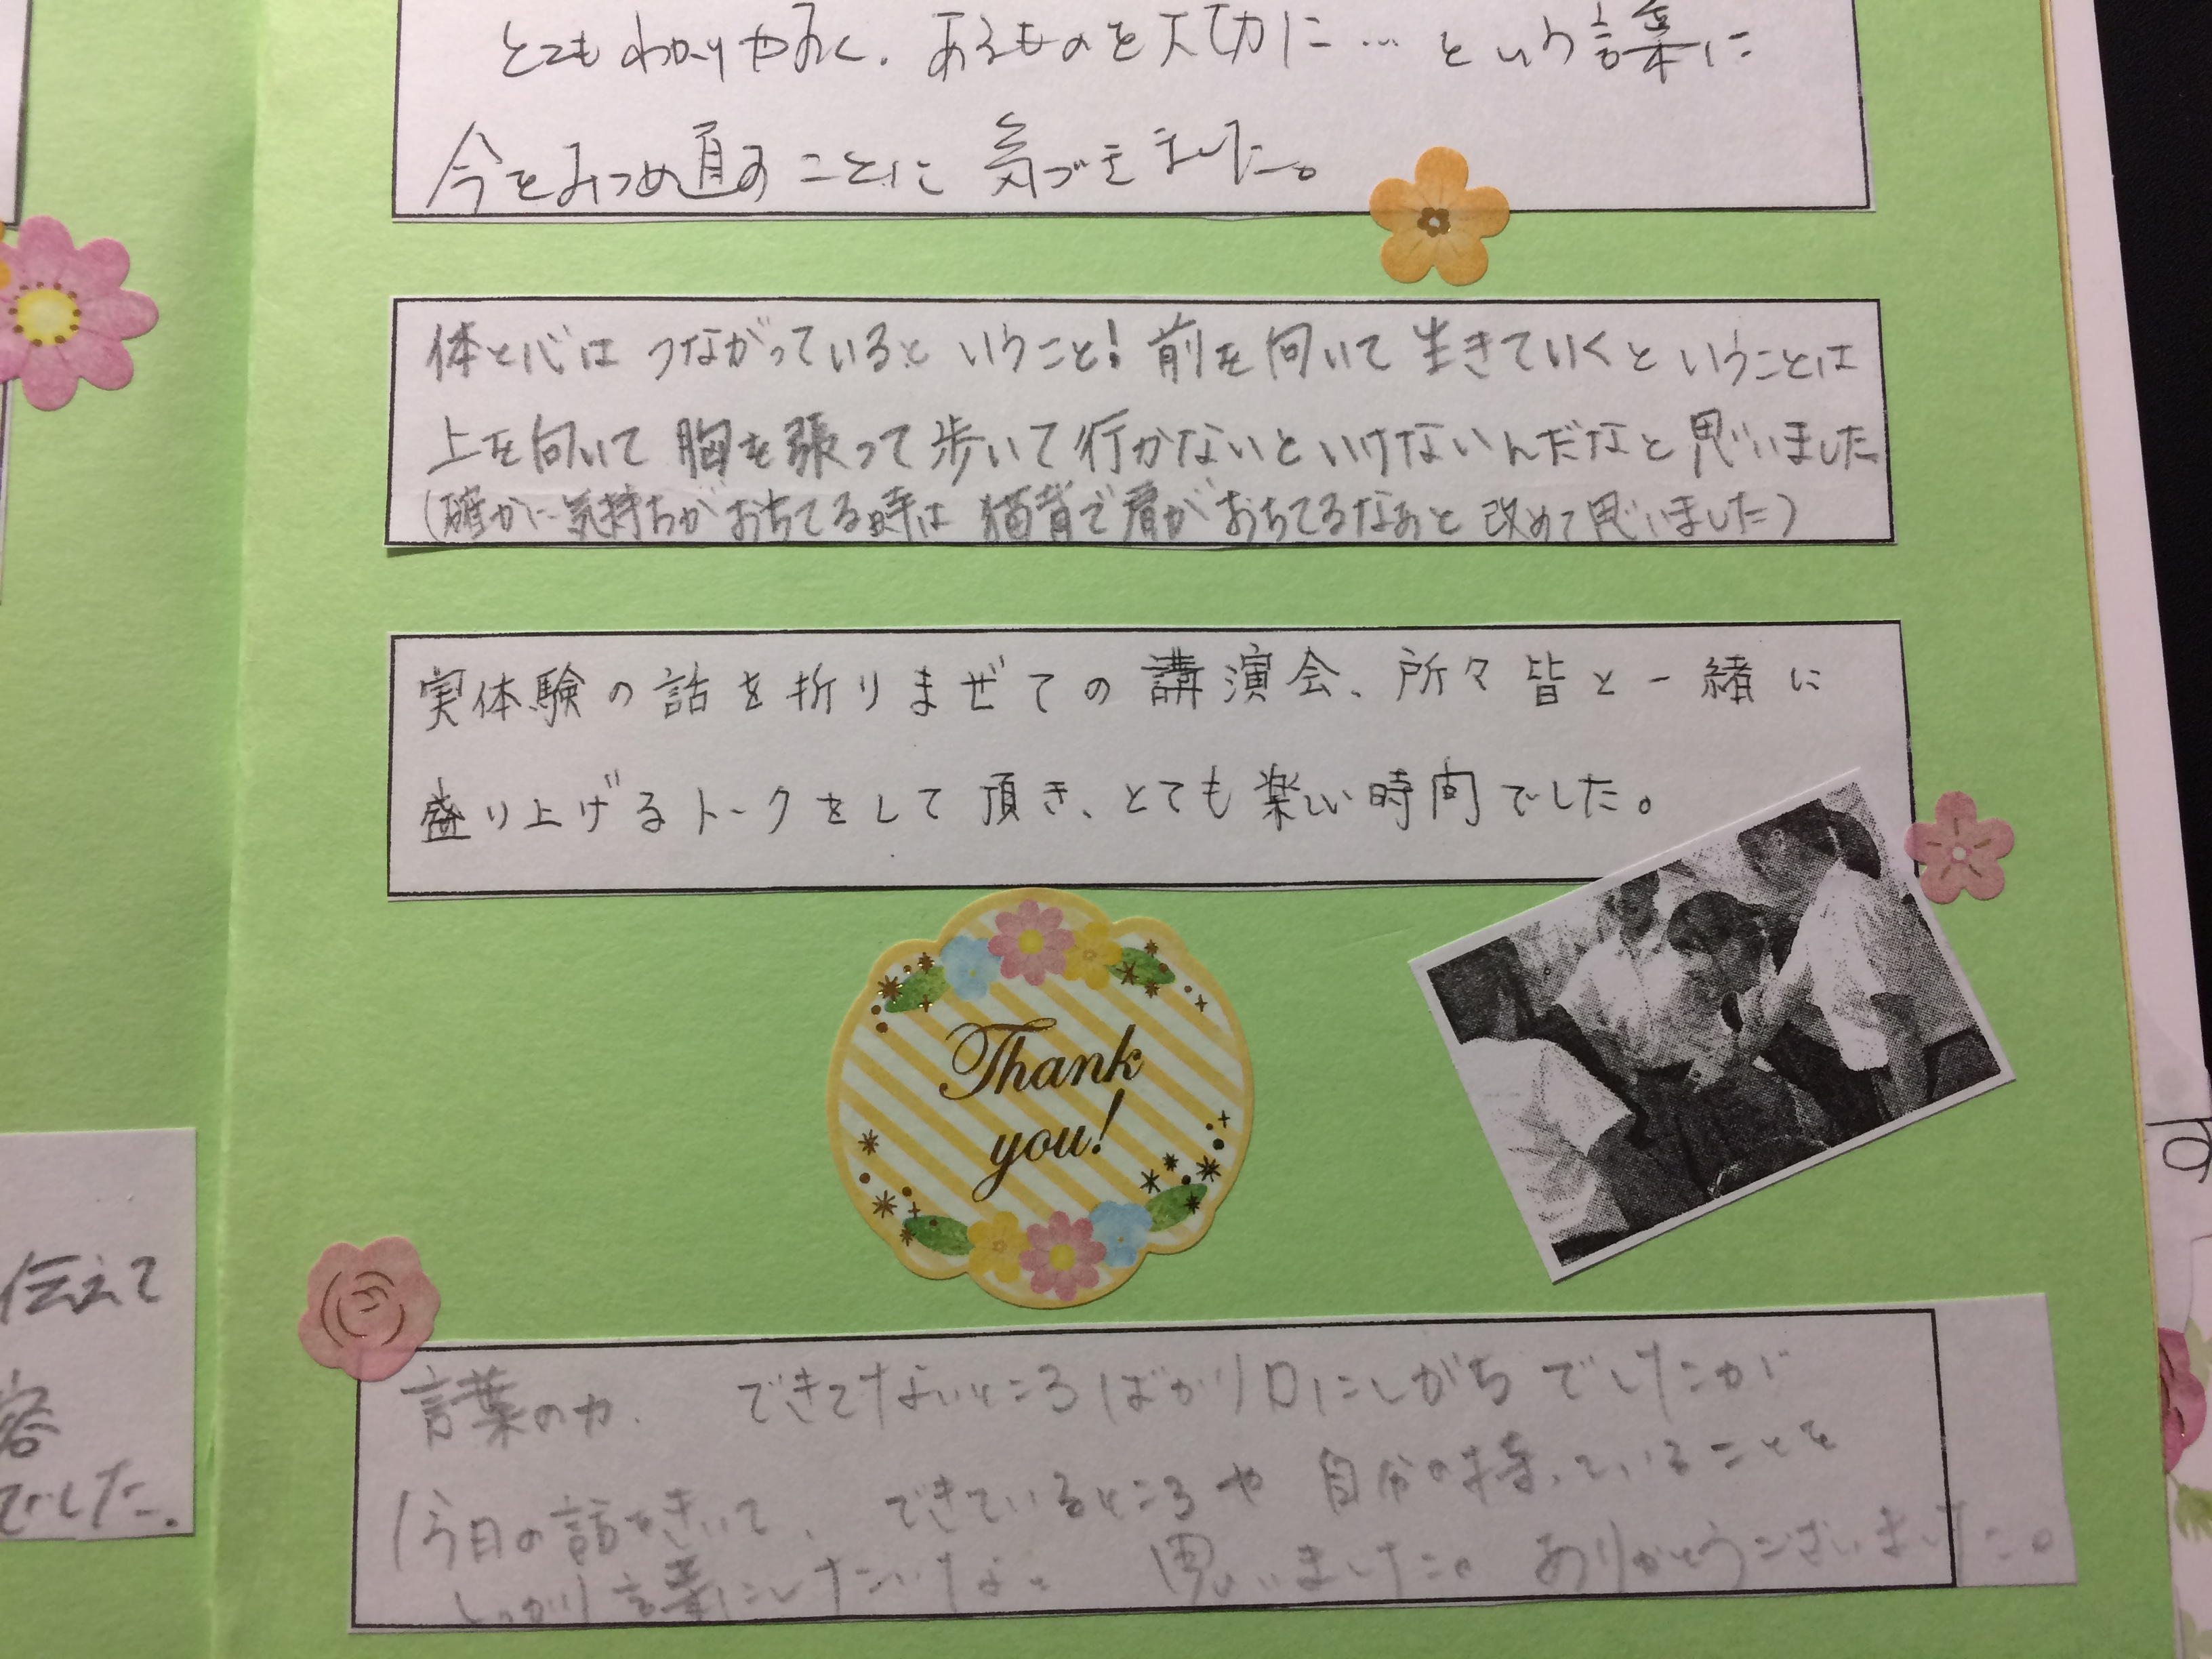 とてもわかりやすく、あるものを大切に…という言葉に
今をみつめ直すことに気づきました。
体と心はつながっているということ！前を向いて生きていくということは
上を向いて胸を張って歩いて行かないといけないんだなと思いました
(確かに気持ちがおちてる時は猫背で肩がおちてるなぁと改めて思いました)
実体験の話を折りまぜての講演会、所々皆と一緒に
盛り上げるトークをして頂き、とても楽しい時間でした。
Thank
you!
伝えて
容
でした。
言葉の力、できてないところばかり口にしがちでしたが
今日の話をきいて、できているところや自分の持っていることを
しっかり言葉にしたいなと思いました。ありがとうございました。